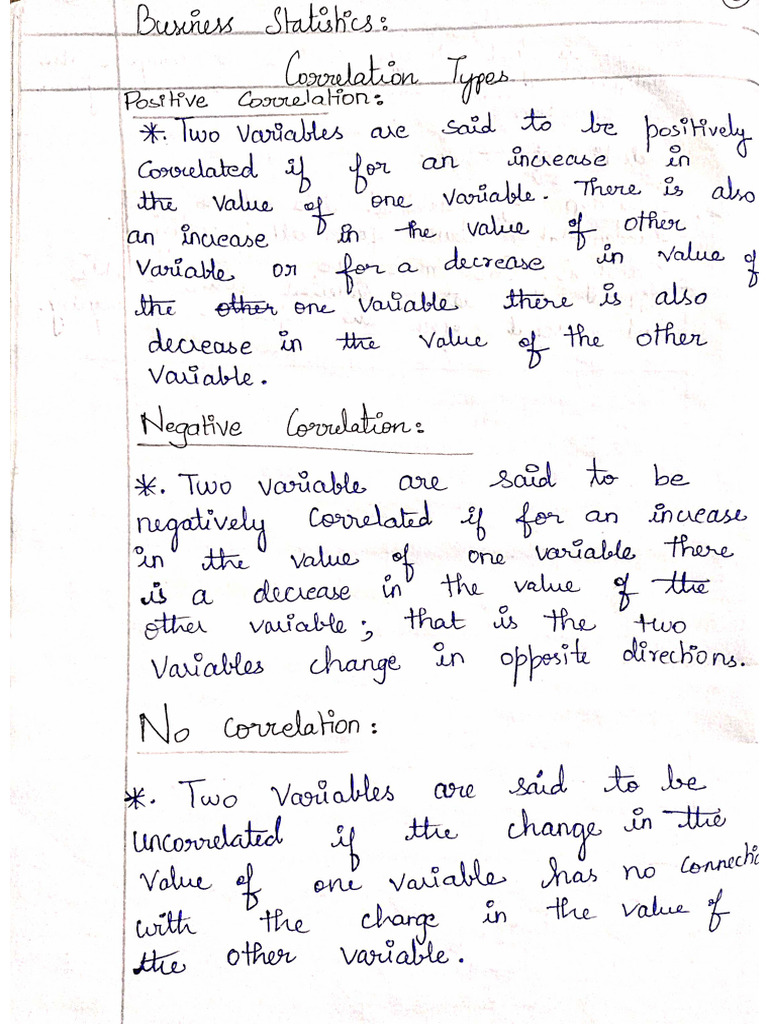 Business Statistics:
Correlation Types
Positive Correlation:
*. Two Variables are said to be positively
Correlated if for an increase in
the value of one variable. There is also
an increase in the value of other
Variable or for a decrease in value of
the other one variable there is also
decrease in the value of the other
Variable.
Negative Correlation:
*. Two variable are said to be
negatively Correlated if for an increase
in the value of one variable there
is a decrease in the value of the
other variable; that is the two
Variables change in opposite directions.
No Correlation:
*. Two Variables are said to be
Uncorrelated if the change in the
Value of one variable has no connecti
with the change in the value of
the other variable.